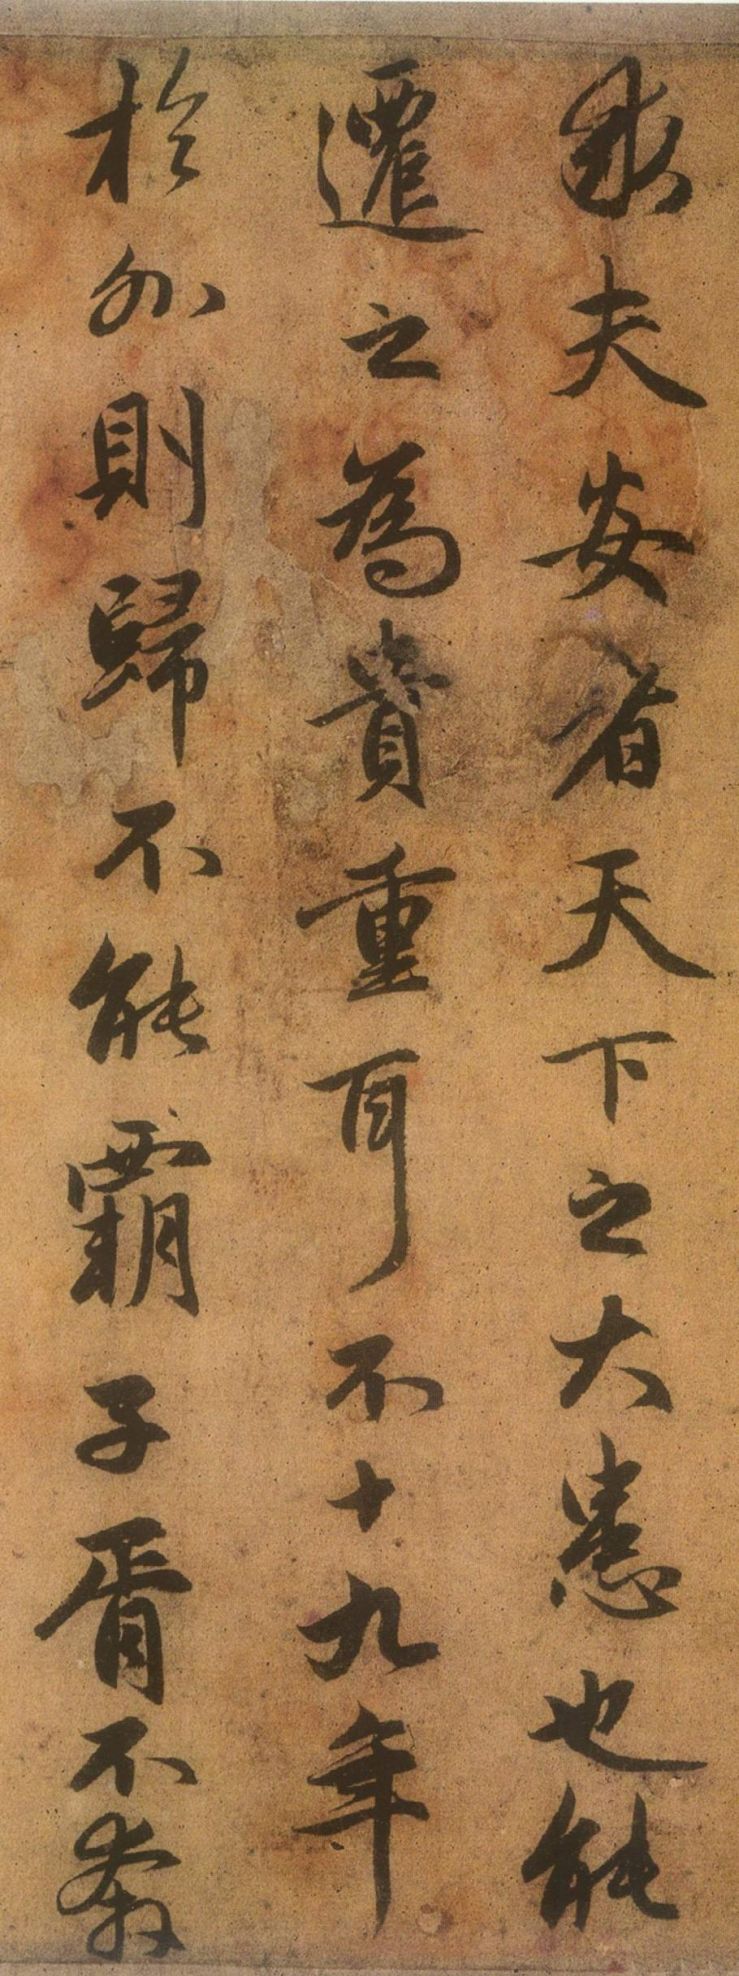 夫安者天下之大患也能
遷之為貴重耳不十九年
於外則歸不能霸子胥不奔